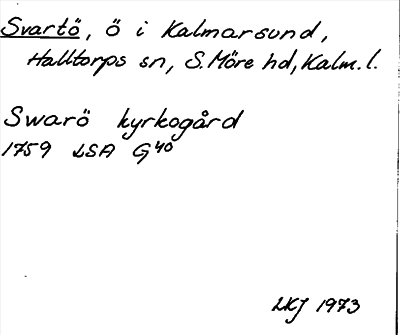 Svartö, ö i Kalmarsund,
Halltorps sn, S. Möre hd, Kalm. l.
Swarö kyrkogård
1759 LSA G 40
LKJ 1973